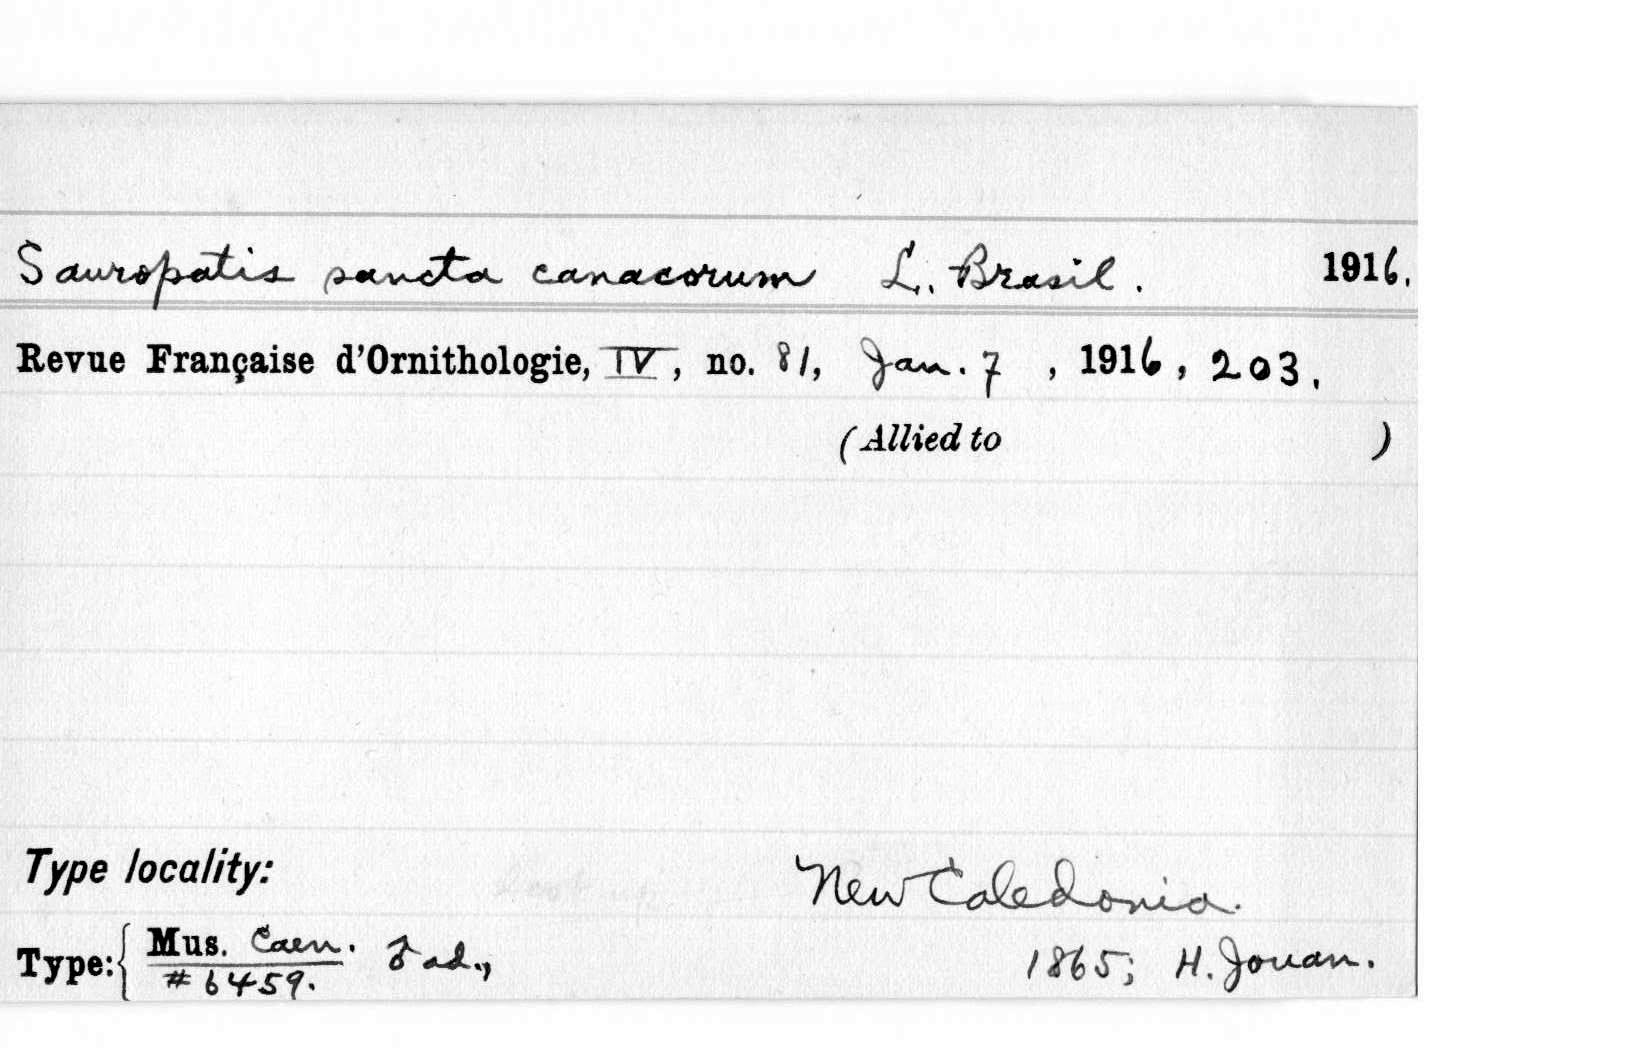 Sauropatis sancta canacorum L. Brasil. 1916.
Revue Française d'Ornithologie, IV, no. 81, Jan. 7, 1916, 203.
(Allied to )
Type locality: New Caledonia.
Type: { Mus. Caen. ♂ ad., 1865; H. Jouan.
#6459.